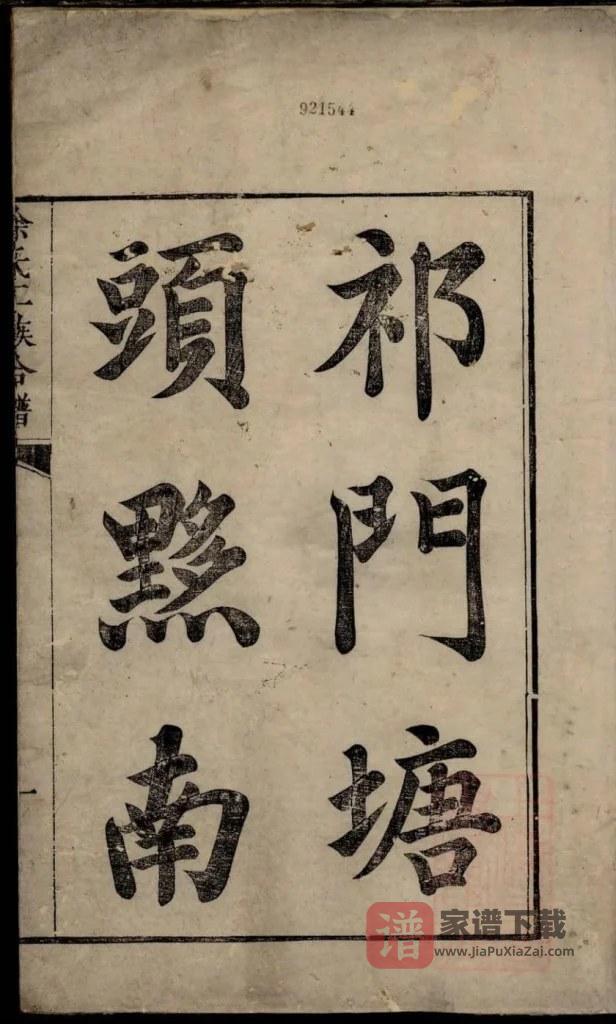 921544
祁門塘
頭黟南
氏
族合譜
一
谱 家谱下载
www.JiaPuXiaZai.com